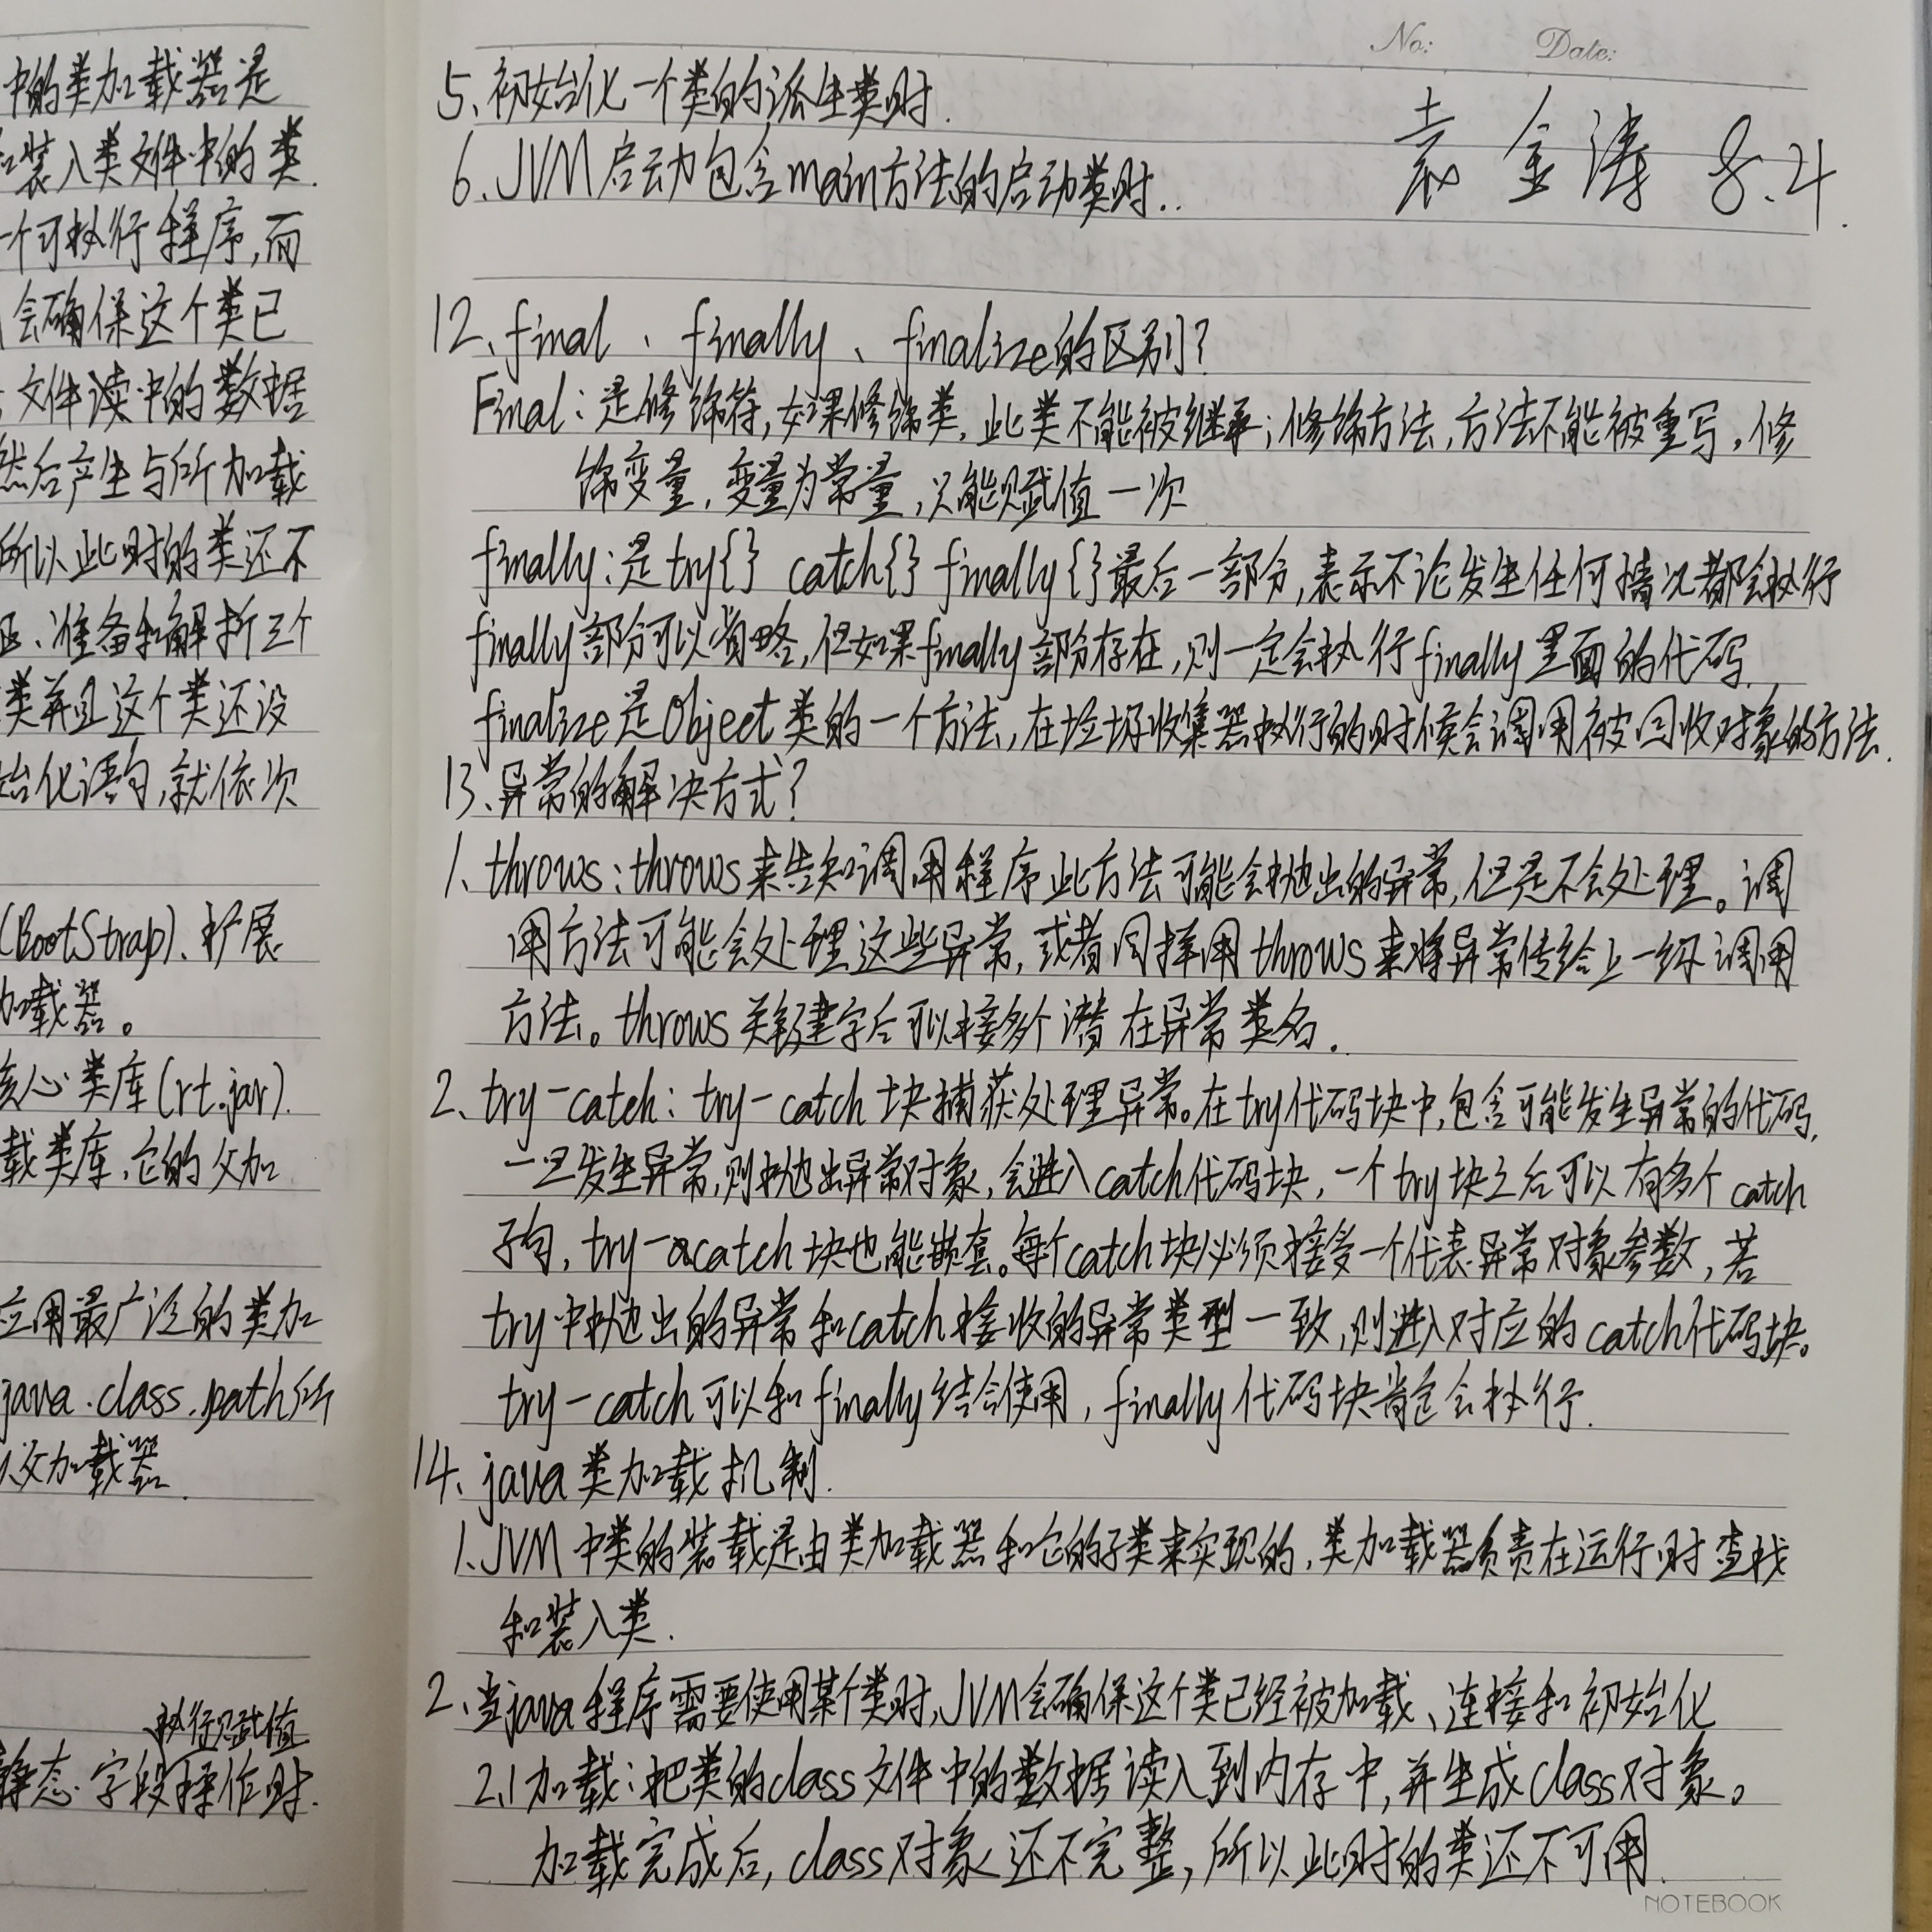 中的类加载器是
和装入类文件中的类.
一个可执行程序,而
会确保这个类已
文件读中的数据
然后产生与所加载
所以此时的类还不
证、准备和解析三个
类并且这个类还没
始化语句,就依次
(BootStrap)、扩展
加载器。
核心类库(rt.jar).
载类库,它的父加
应用最广泛的类加
java.class.path所
父加载器.
执行赋值
静态字段操作时.
No: Date:
袁金涛 8.4.
5、初始化一个类的派生类时.
6、JVM启动包含main方法的启动类时..
12、final、finally、finalize的区别?
Final:是修饰符,如果修饰类,此类不能被继承;修饰方法,方法不能被重写,修
饰变量,变量为常量,只能赋值一次
finally:是try{} catch{} finally{}最后一部分,表示不论发生任何情况都会执行
finally部分可以省略,但如果finally部分存在,则一定会执行finally里面的代码.
finalize是Object类的一个方法,在垃圾收集器执行的时候会调用被回收对象的方法.
13、异常的解决方式?
1、throws:throws来告知调用程序此方法可能会抛出的异常,但是不会处理。调
用方法可能会处理这些异常,或者同样用throws来将异常传给上一级调用
方法。throws关键字后可以接多个潜在异常类名.
2、try-catch:try-catch块捕获处理异常。在try代码块中,包含可能发生异常的代码,
一旦发生异常,则抛出异常对象,会进入catch代码块,一个try块之后可以有多个catch
子句,try-catch块也能嵌套。每个catch块必须接受一个代表异常对象参数,若
try中抛出的异常和catch接收的异常类型一致,则进入对应的catch代码块。
try-catch可以和finally结合使用,finally代码块肯定会执行.
14、java类加载机制.
1、JVM中类的装载是由类加载器和它的子类来实现的,类加载器负责在运行时查找
和装入类.
2、当java程序需要使用某个类时,JVM会确保这个类已经被加载、连接和初始化
2.1加载:把类的class文件中的数据读入到内存中,并生成class对象。
加载完成后,class对象还不完整,所以此时的类还不可用.
NOTEBOOK